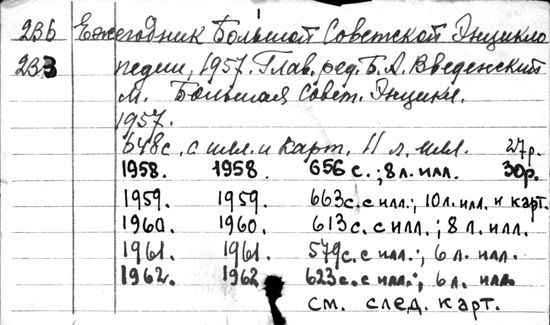 236 Ежегодник Большой Советской Энцикло
233 педии, 1957. Глав. ред. Б. А. Введенский
М. Большая Совет. Энцикл.
1957.
648 с. с илл. и карт. 11 л. илл. 27р.
1958. 1958. 656 с.; 8 л. илл. 30р.
1959. 1959. 663 с. с илл.; 10 л. илл. и карт.
1960. 1960. 613 с. с илл.; 8 л. илл.
1961. 1961. 579 с. с илл.; 6 л. илл.
1962. 1962 623 с. с илл.; 6 л. илл.
см. след. карт.